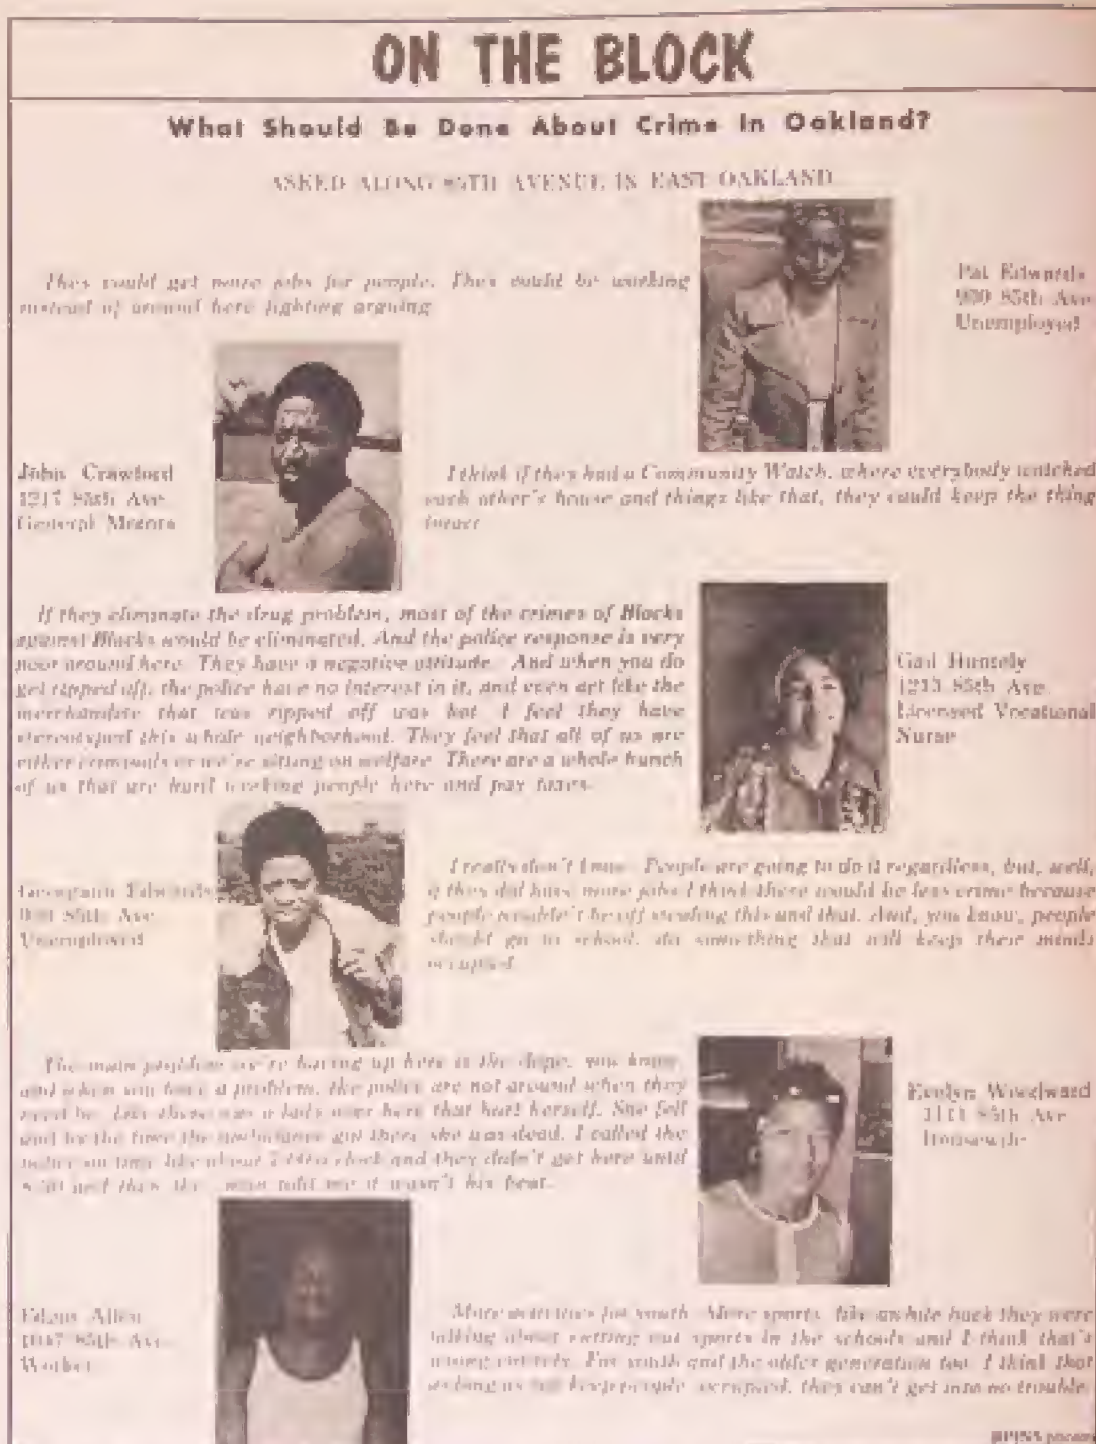 ON THE BLOCK
What Should Be Done About Crime In Oakland?
ASKED ALONG 85TH AVENUE IN EAST OAKLAND
They could get more jobs for people. They could be working
instead of around here fighting arguing
Pat Edwards
85th Ave
Unemployed
John Crawford
1217 85th Ave
General Motors
I think if they had a Community Watch, where everybody watched
each other's house and things like that, they could keep the thing
lower
If they eliminate the drug problem, most of the crimes of Blacks
against Blacks would be eliminated. And the police response is very
poor around here. They have a negative attitude. And when you do
get ripped off, the police have no interest in it, and even act like the
merchandise that was ripped off was hot. I feel they have
stereotyped this whole neighborhood. They feel that all of us are
either criminals or we're sitting on welfare. There are a whole bunch
of us that are hard working people here and pay taxes.
Gail
85th Ave.
Licensed Vocational
Nurse
Edwards
85th Ave
Unemployed
I really don't know. People are going to do it regardless, but, well,
if they did have more jobs I think there would be less crime because
people wouldn't be off stealing this and that. And, you know, people
should go to school, do something that will keep their minds
occupied
The main problem we're having up here is the dope, you know,
and when you have a problem, the police are not around when they
need be. Like there was a lady over here that hurt herself. She fell
and by the time the ambulance got there she was dead. I called the
police one time like about o'clock and they didn't get here until
and then the man told me it wasn't his beat.
Evelyn Woodward
85th Ave
Housewife
Allen
85th Ave.
Worker
More activities for youth. More sports, like awhile back they were
talking about cutting out sports in the schools and I think that's
wrong entirely. For youth and the older generation too. I think that
as long as you keep people occupied, they can't get into no trouble.